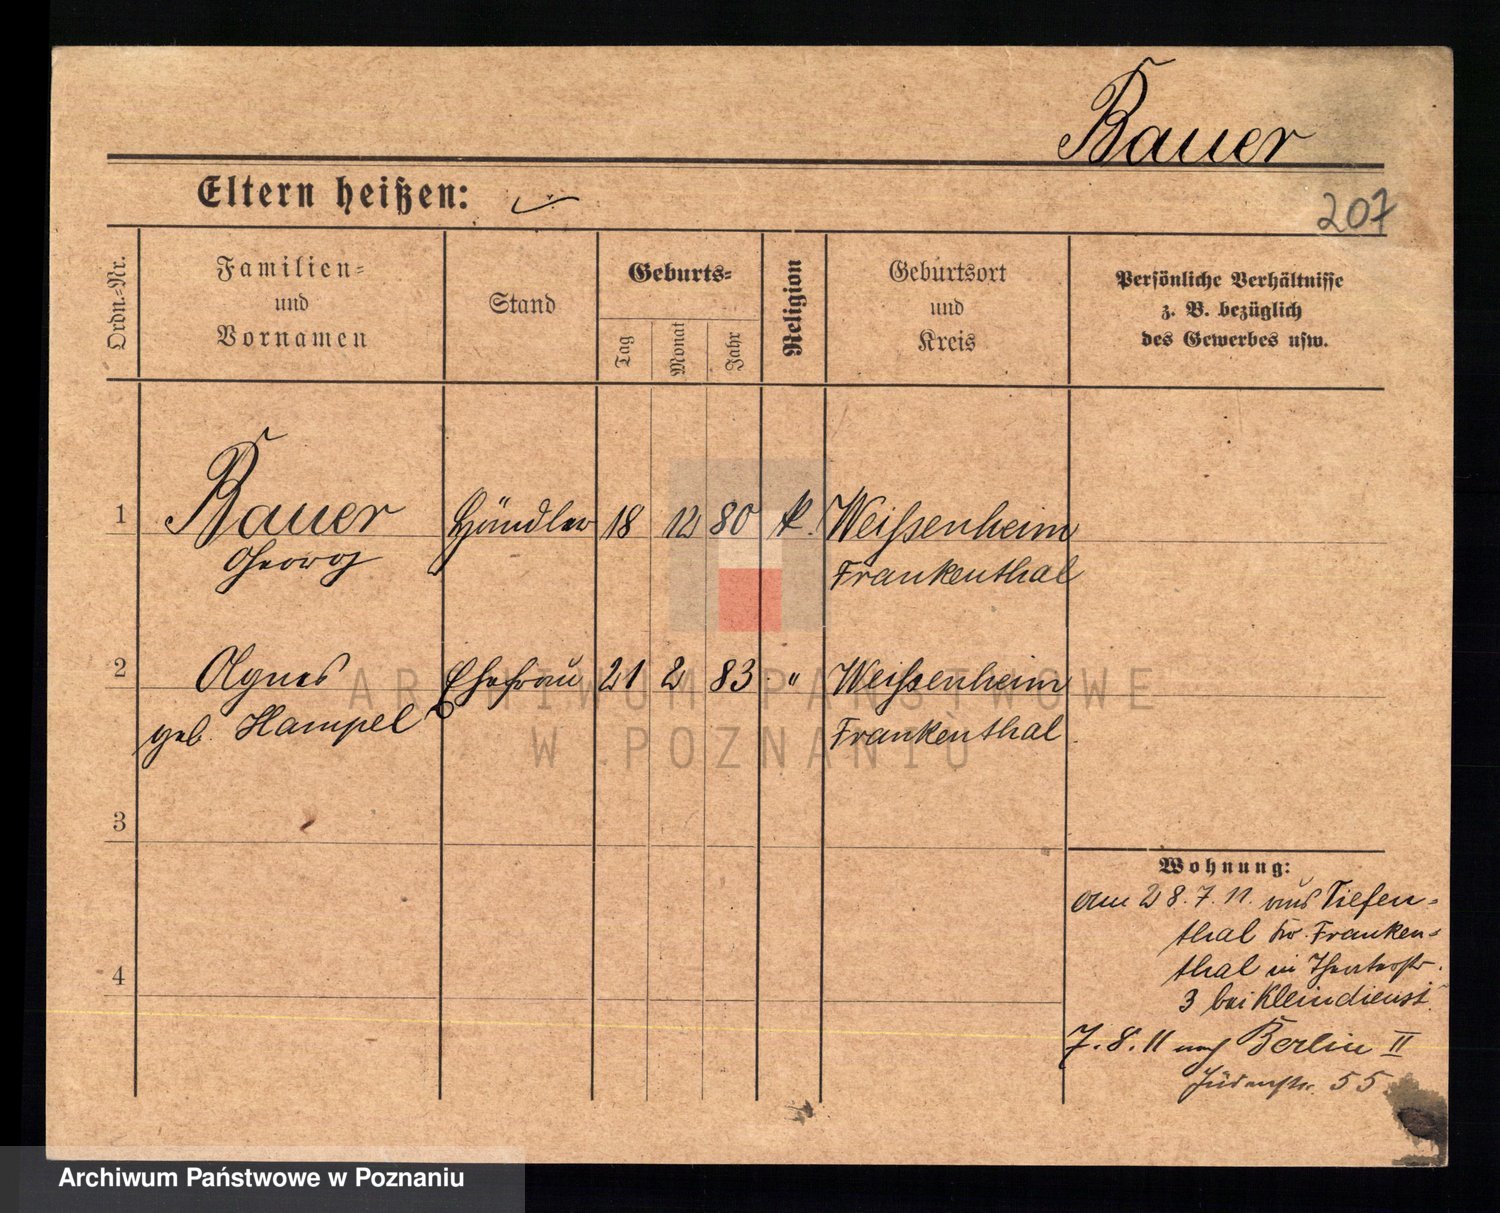 Bauer
Eltern heißen:
207
Ordn.-Nr.
Familien-
und
Vornamen
Stand
Geburts-
Tag
Monat
Jahr
Religion
Geburtsort
und
Kreis
Persönliche Verhältnisse
z. B. bezüglich
des Gewerbes usw.
1 Bauer Händler 18 12 80 k. Weißenheim
Georg Frankenthal
2 Agnes Ehefrau 21 2 83 " Weißenheim
geb. Hampel Frankenthal
3
4
Wohnung:
am 28.7.11. aus Tiefen-
thal Kr. Franken-
thal in Theaterstr.
3 bei Kleindienst
7.8.11 nach Berlin II
Jüdenstr. 55
ARCHIWUM PAŃSTWOWE
W POZNANIU
Archiwum Państwowe w Poznaniu